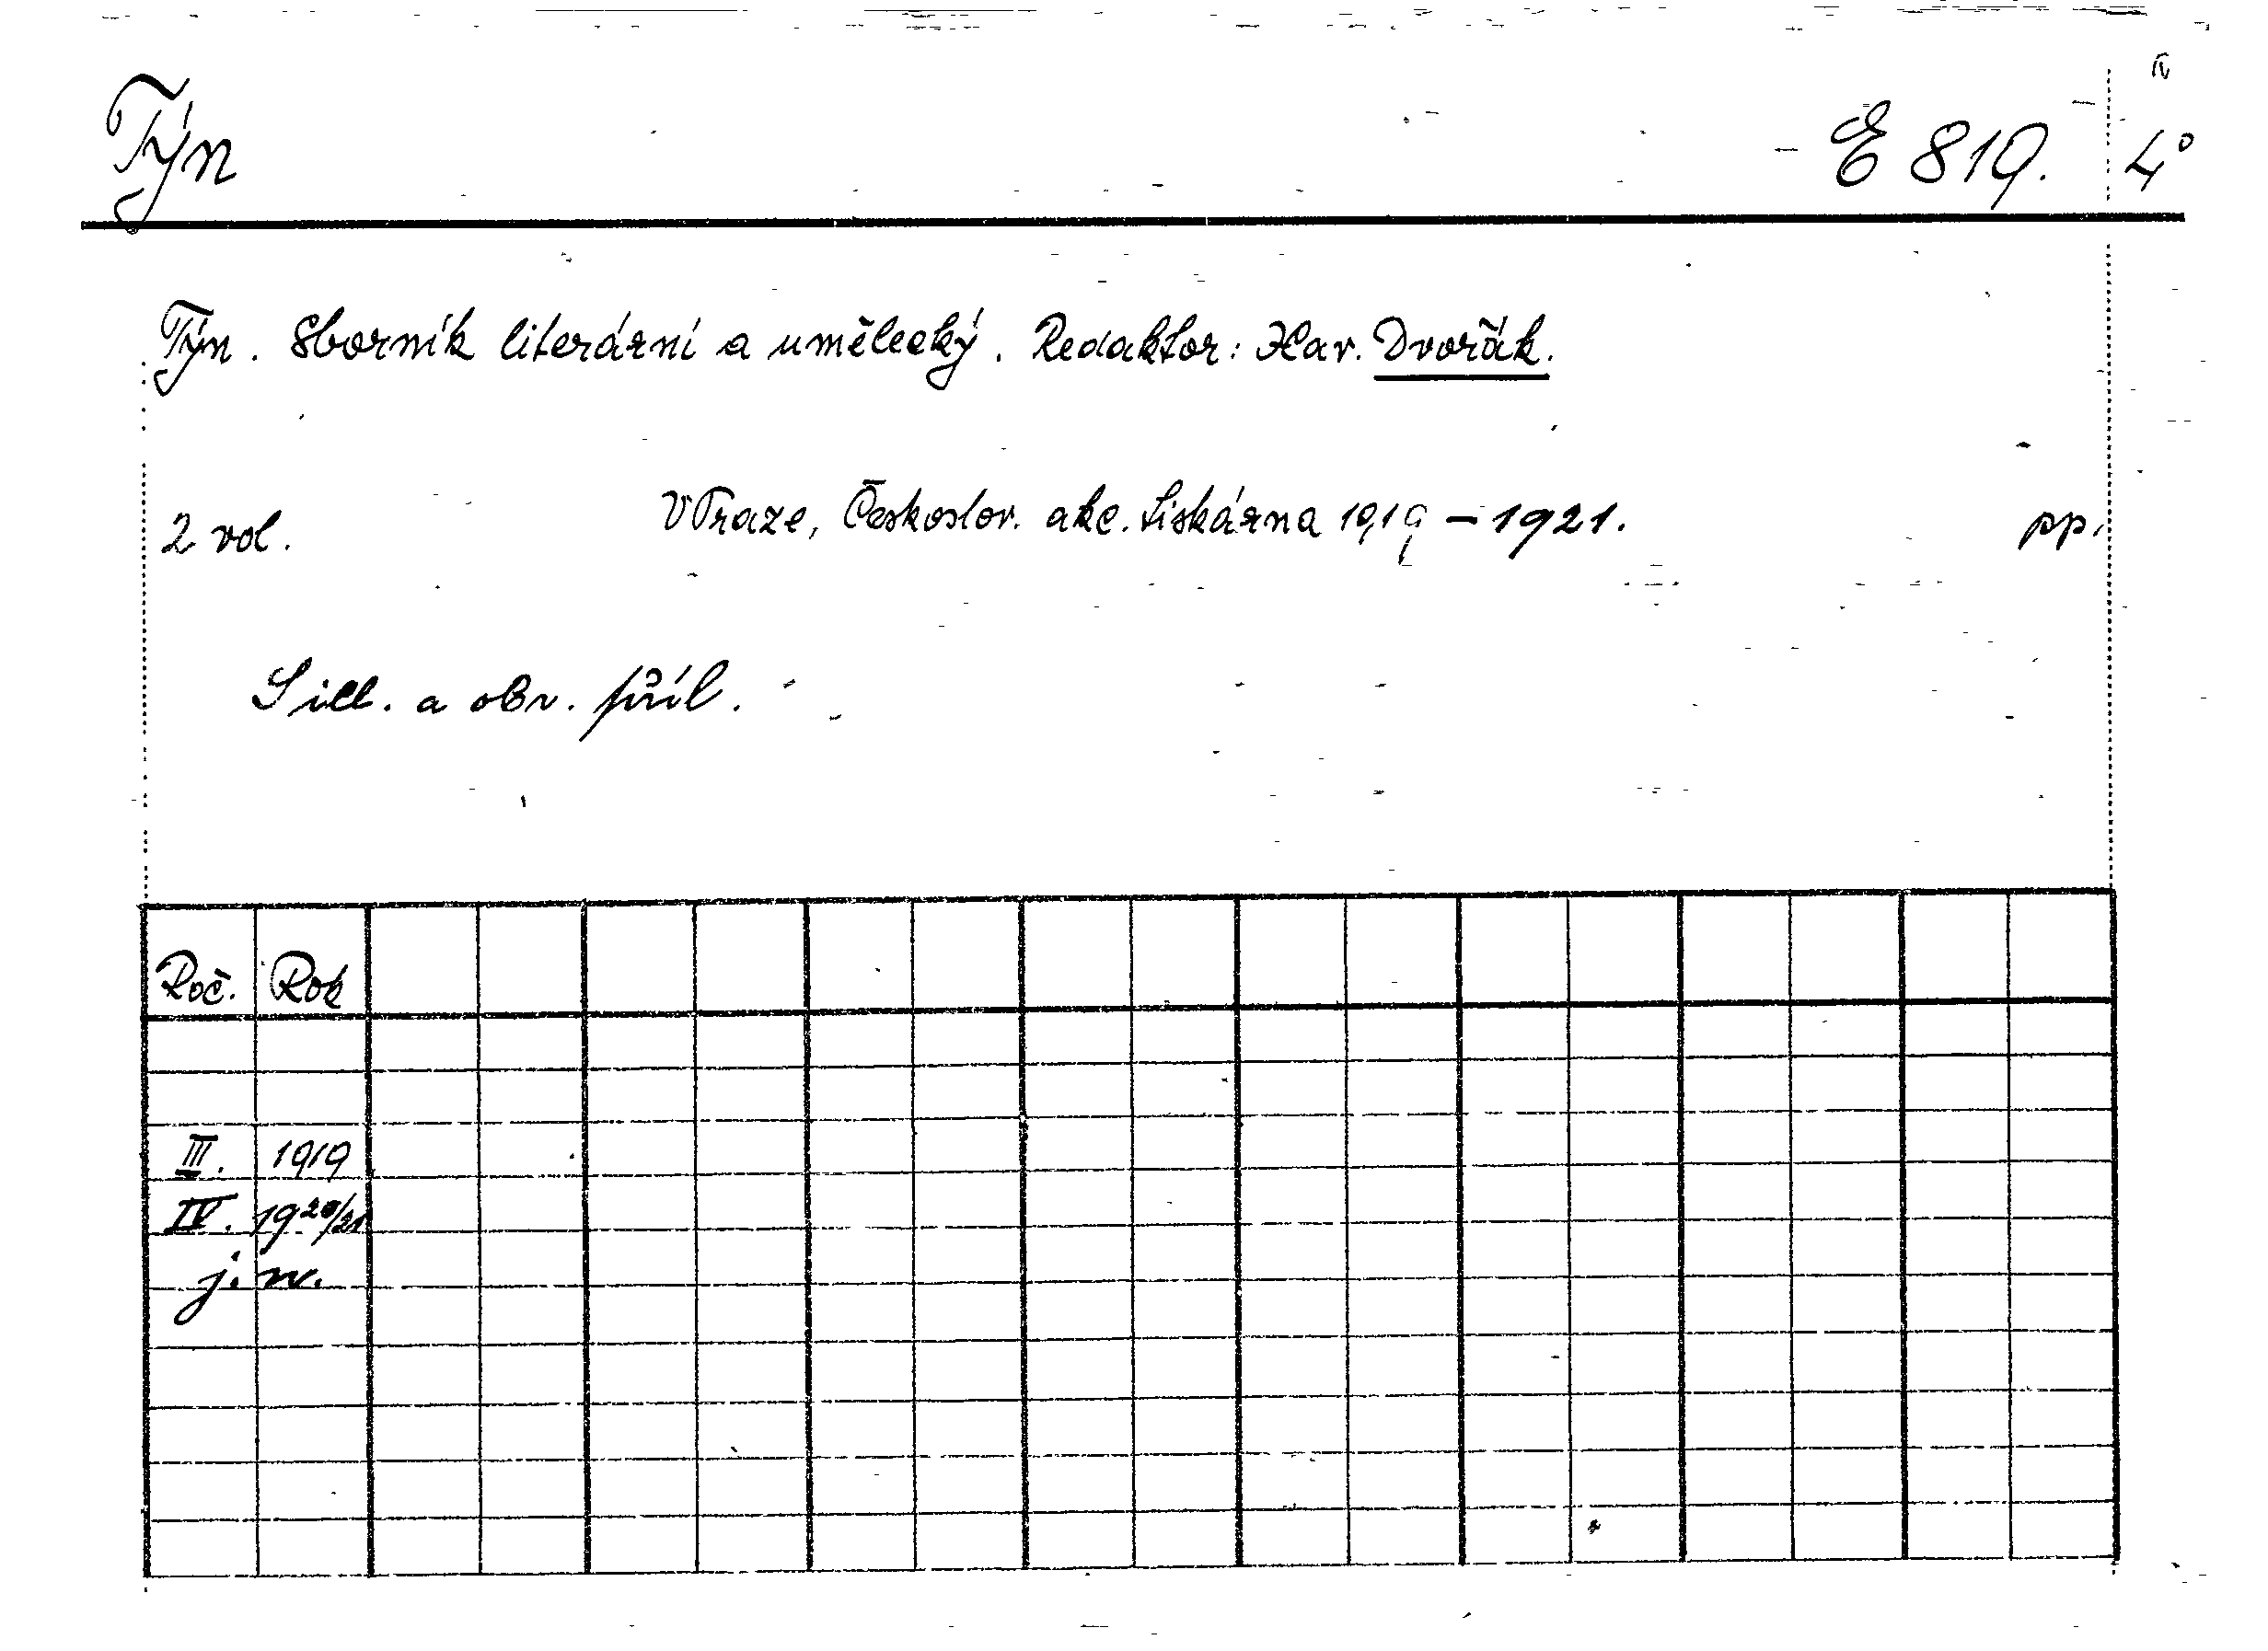 Týn E 819. 4°
Týn. Sborník literární a umělecký. Redaktor: Xav. Dvořák.
2 vol. V Praze, Českoslov. akc. tiskárna 1919 – 1921. pp.
S ill. a obr. příl.
Roč. Rok
III. 1919
IV. 1920/21
j. n.